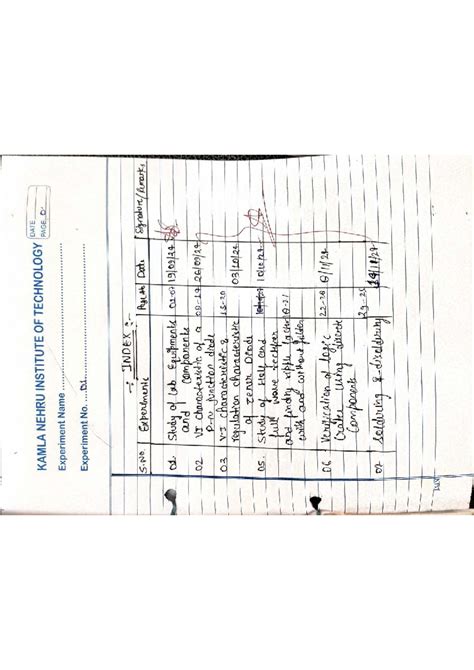 KAMLA NEHRU INSTITUTE OF TECHNOLOGY
DATE
PAGE
Experiment Name
Experiment No. 01
-: INDEX :-
S.No. Experiments Page No Date Signature/Remarks
01. Study of Lab Equipments 19/09/24
and components
02 VI characteristic of a 26/09/24
P-n junction diode
03 V-I characteristic & 15-20 03/10/24
regulation characteristic
of zener Diode
05. Study of Half and 10/10/24
full wave rectifier
and finding ripple factor
with and without filter
06 Verification of logic 22-28
Gates using discrete
components
07 soldering & disoldering